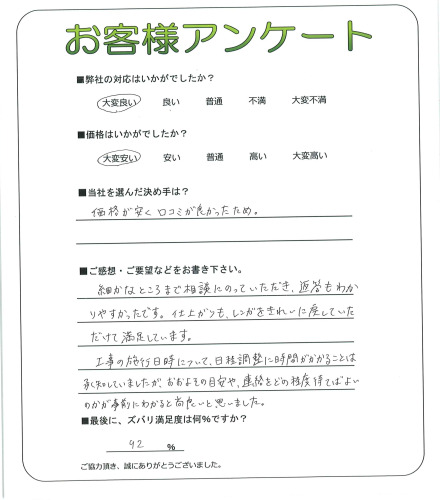 お客様アンケート
■弊社の対応はいかがでしたか?
大変良い 良い 普通 不満 大変不満
■価格はいかがでしたか?
大変安い 安い 普通 高い 大変高い
■当社を選んだ決め手は?
価格が安く 口コミが良かったため。
■ご感想・ご要望などをお書き下さい。
細かなところまで相談にのっていただき、返答もわか
りやすかったです。仕上がりも、レンガをきれいに戻していた
だけて満足しています。
工事の施行日時について、日程調整に時間がかかることは
承知していましたが、おおよその目安や、連絡をどの程度待てばよい
のかが事前にわかると尚良いと思いました。
■最後に、ズバリ満足度は何%ですか?
92 %
ご協力頂き、誠にありがとうございました。